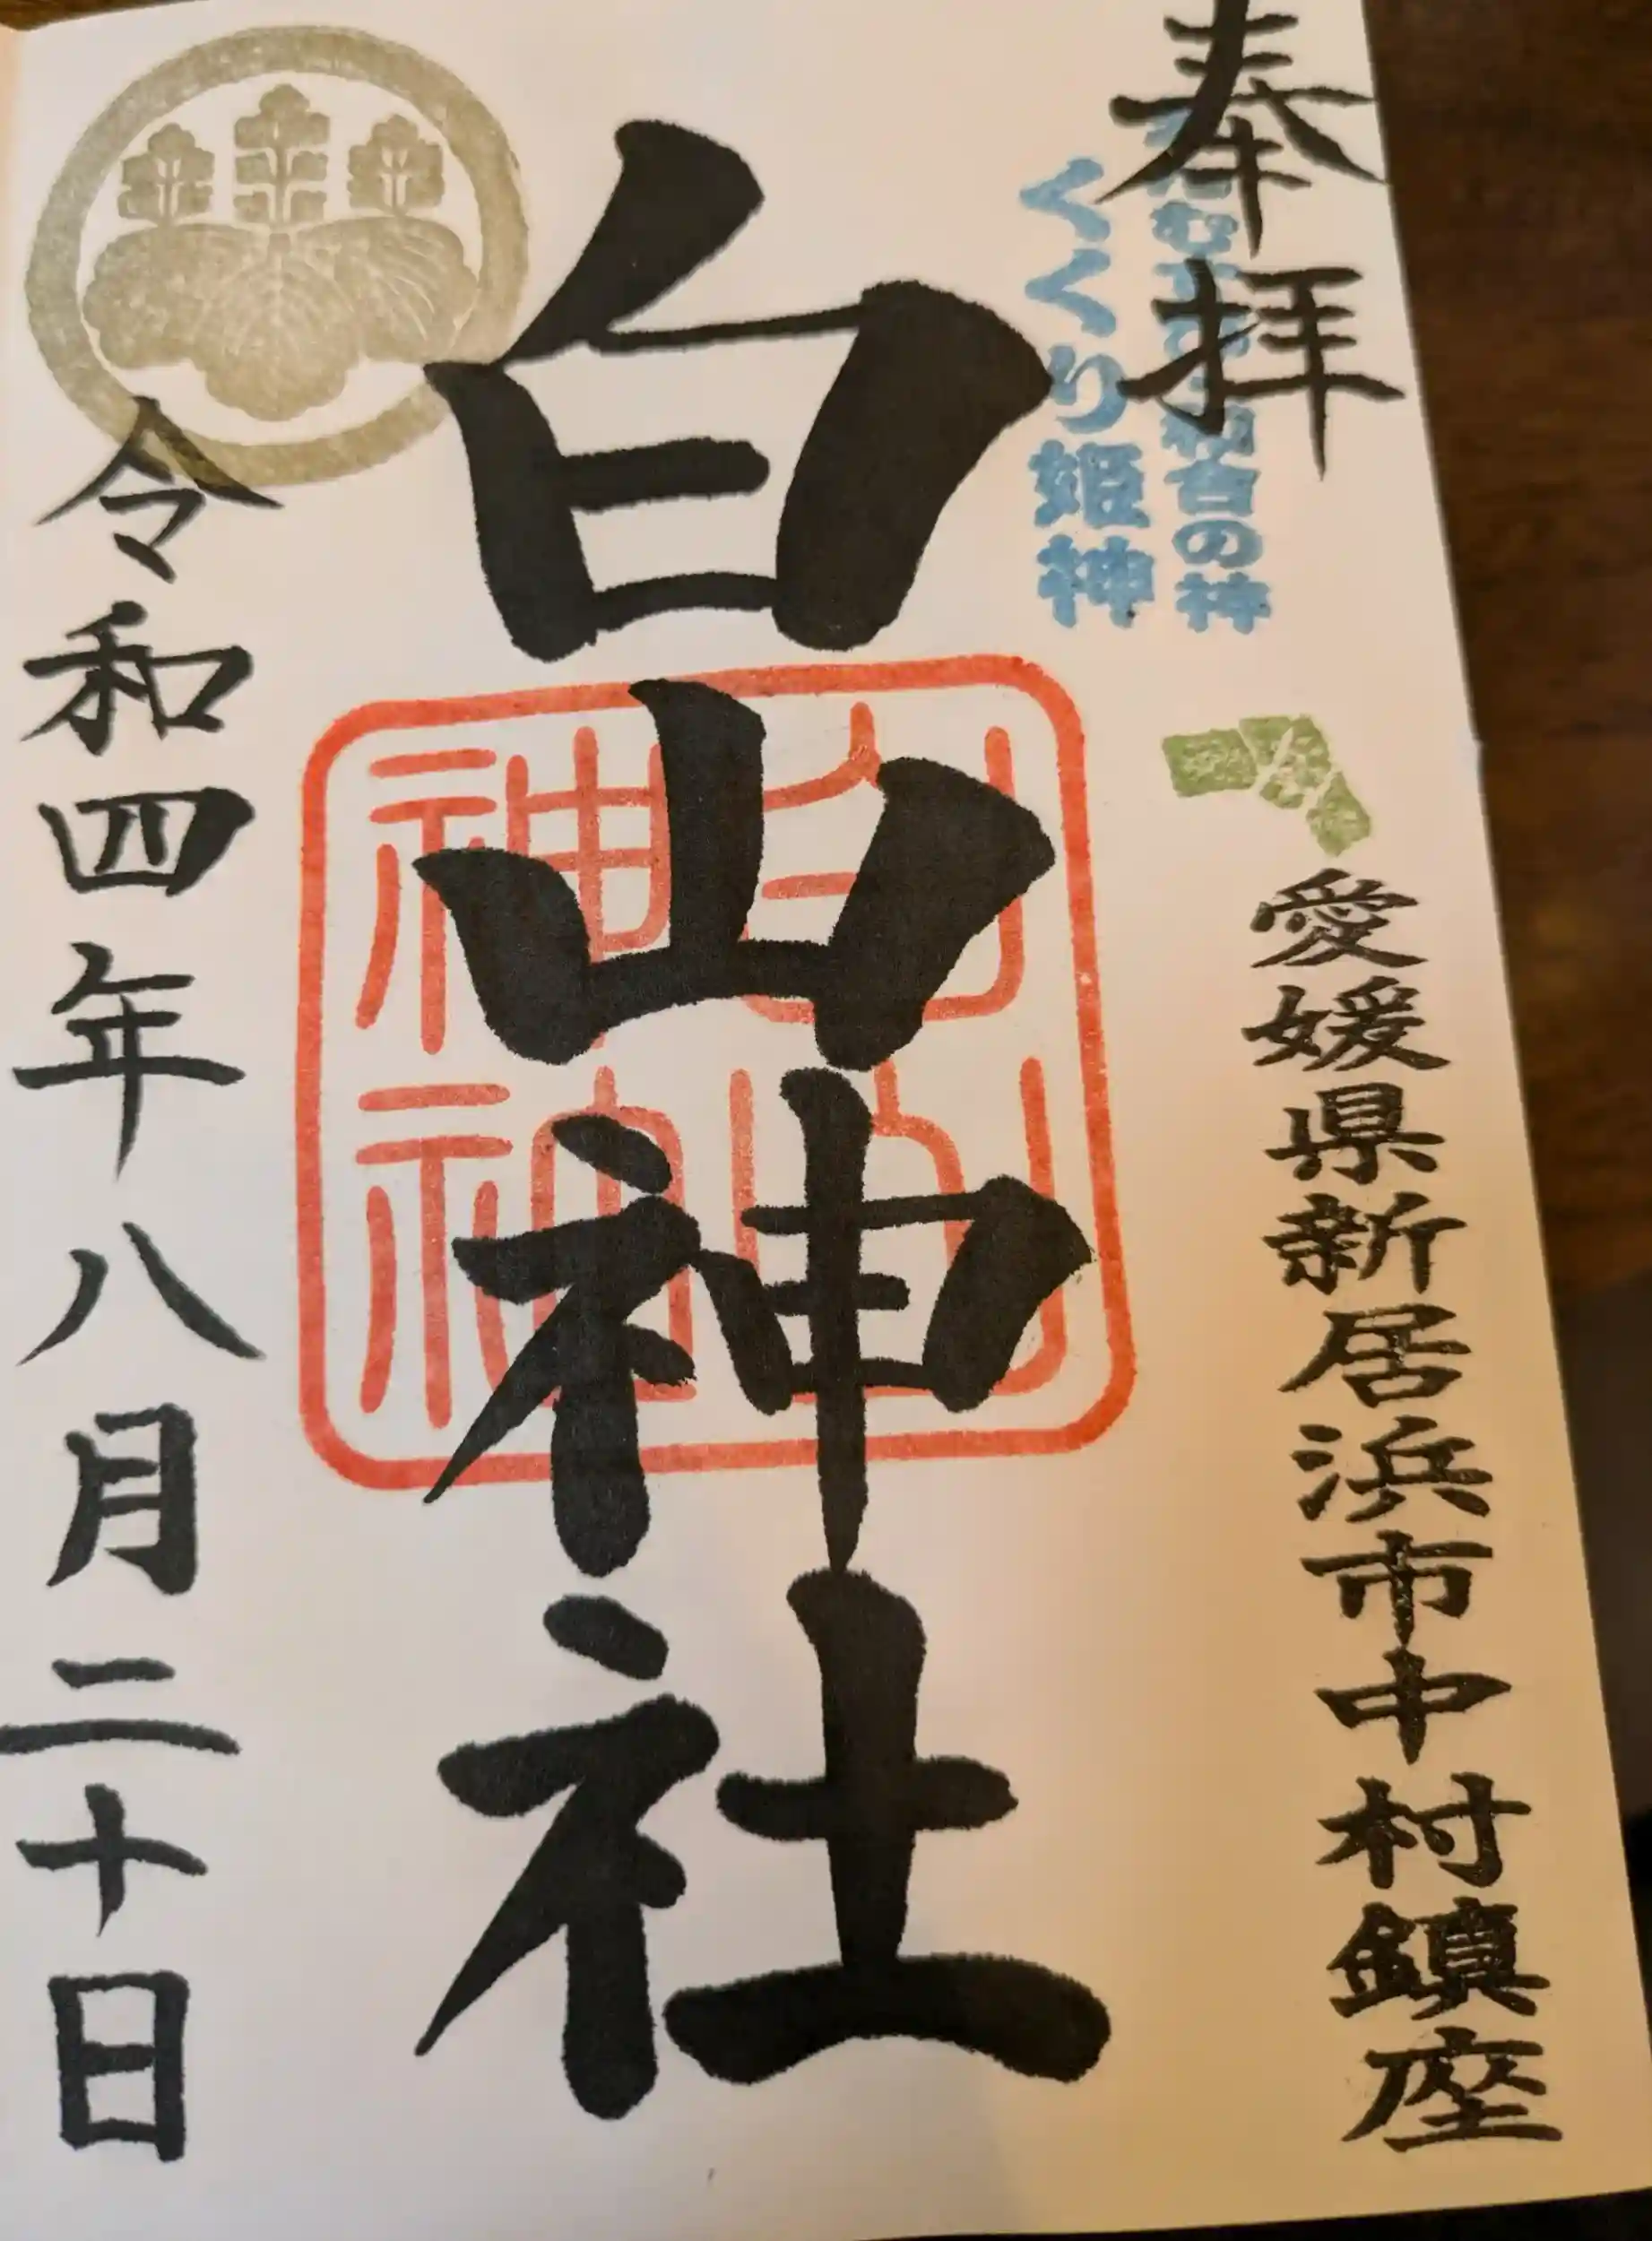 奉拝
むすび和合の神
くくり姫神
愛媛県新居浜市中村鎮座
白山神社
白山
神社
令和四年八月二十日